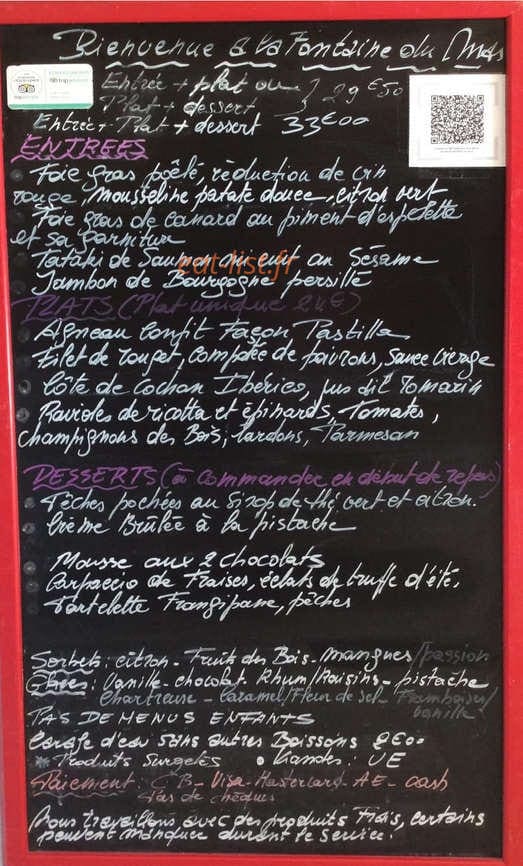 Bienvenue à la Fontaine du Mas
Entrée + plat ou
Plat + dessert } 29€50
Entrée + Plat + dessert 33€00
ENTREES
Foie gras poêlé, réduction de vin
rouge, mousseline patate douce, citron vert
Foie gras de canard au piment d'espelette
et sa garniture
Tataki de Saumon mi cuit au Sésame
eat-list.fr
Jambon de Bourgogne persillé
PLATS (Plat unique 24€)
Agneau Confit Façon Pastilla
Filet de rouget, compotée de poivrons, Sauce vierge
Côte de Cochon Iberico, jus au Romarin
Ravioles de ricotta et épinards, Tomates,
champignons des Bois, lardons, Parmesan
DESSERTS (à commander en début de repas)
Pêches pochées au Sirop de thé vert et citron.
Crème Brûlée à la pistache
Mousse aux 2 chocolats
Carpaccio de Fraises, éclats de truffe d'été.
Tartelette Frangipane, pêches
Sorbets : citron - Fruits des Bois - mangues/passion
Glaces : Vanille - chocolat. Rhum/Raisins - pistache
Chartreuse - Caramel/Fleur de sel - Framboises/
vanille
PAS DE MENUS ENFANTS
Carafe d'eau sans autres Boissons 2€00
* Produits Surgelés • Viandes : UE
Paiement : CB - Visa - Mastercard - AE - cash
Pas de chèques
Nous travaillons avec des produits Frais, certains
peuvent manquer durant le service.